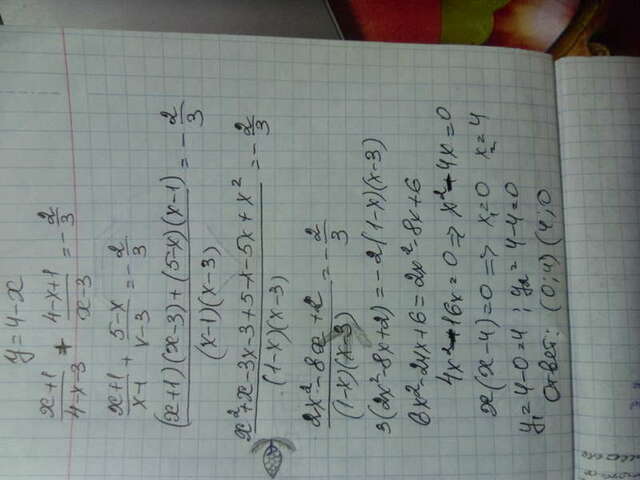 y = 4 - x
(x+1)/(4-x-3) + (4-x+1)/(x-3) = -2/3
(x+1)/(x-1) + (5-x)/(x-3) = -2/3
((x+1)(x-3)+(5-x)(x-1))/((x-1)(x-3)) = -2/3
(x²+x-3x-3+5-x-5x+x²)/((1-x)(x-3)) = -2/3
(2x²-8x+2)/((1-x)(x-3)) = -2/3
3(2x²-8x+2) = -2(1-x)(x-3)
6x²-24x+6 = 2x²-8x+6
4x²-16x=0 => x²-4x=0
x(x-4)=0 => x₁=0 x₂=4
y₁=4-0=4; y₂=4-4=0
Ответ: (0;4) (4;0